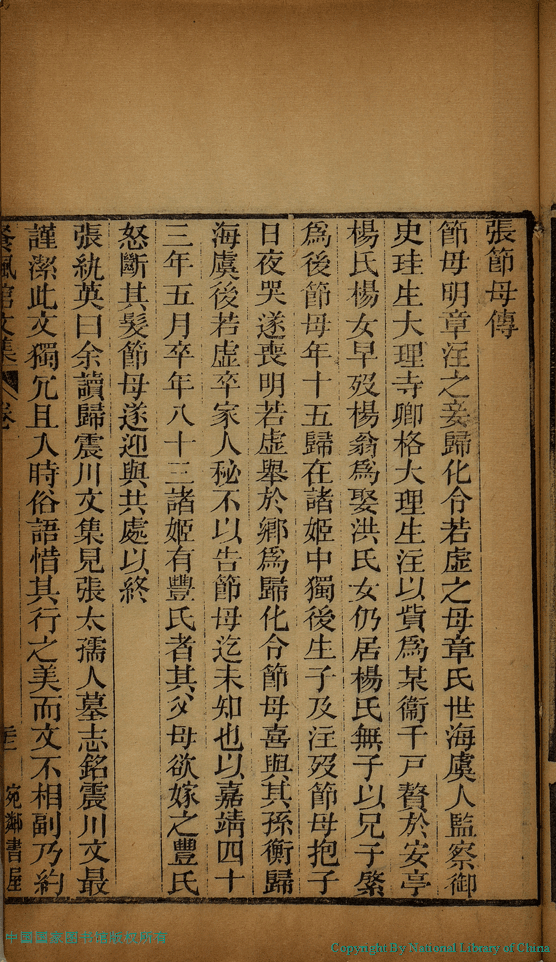 張節母傳
節母明章注之妾歸化令若虛之母章氏世海虞人監察御
史珪生大理寺卿格大理生注以貲爲某衞千戸贅於安亭
楊氏楊女早歿楊翁爲娶洪氏女仍居楊氏無子以兄子棨
爲後節母年十五歸在諸姬中獨後生子及注歿節母抱子
日夜哭遂喪明若虛舉於鄉爲歸化令節母喜與其孫衡歸
海虞後若虛卒家人秘不以告節母迄未知也以嘉靖四十
三年五月卒年八十三諸姬有豐氏者其父母欲嫁之豐氏
怒斷其髮節母遂迎與共處以終
張紈英曰余讀歸震川文集見張太孺人墓志銘震川文最
謹潔此文獨冗且入時俗語惜其行之美而文不相副乃約
餐楓館文集 卷
宛鄰書屋
中國國家圖书馆版权所有
Copyright By National Library of China